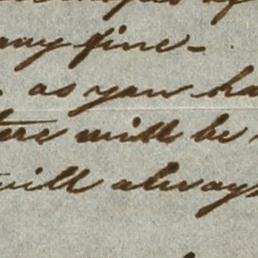 any fine –
as you ha
tere will be
will always